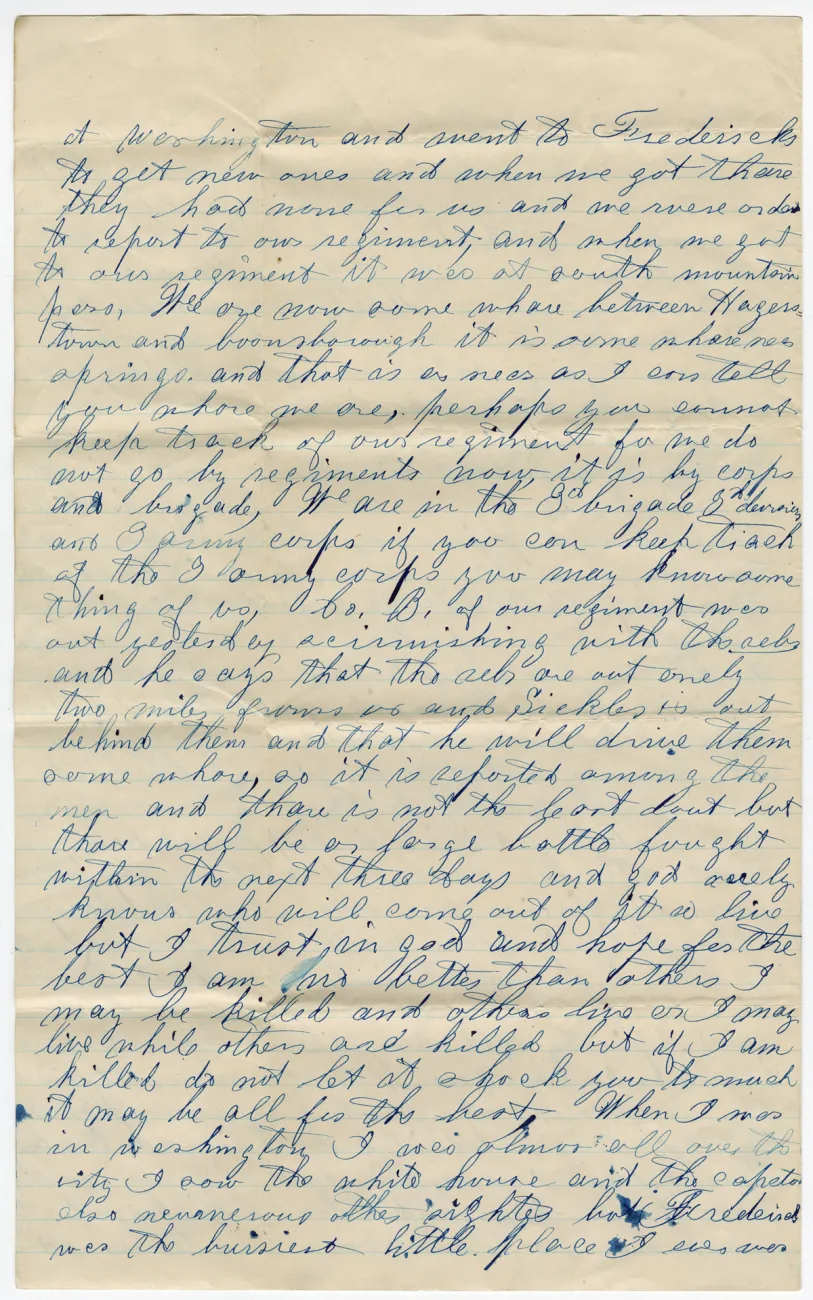 at Washington and went to Fredericks
to get new ones and when we got thare
they had none for us and we were order
to report to our regiment, and when we got
to our regiment it was at south mountain
pass, We are now some whare between Hagers=
town and boonsborough it is some whare near
springs. and that is as near as I can tell
you whare we are, perhaps you cannot
keep track of our regiment for we do
not go by regiments now, it is by corps
and brigade, We are in the 3d brigade 3d devision
and 3 army corps if you can keep track
of the 3 army corps you may know some
thing of us, Co. B. of our regiment was
out yesterday scirmishing with the rebs
and he says that the rebs are out onely
two miles from us and Sickles is out
behind them and that he will drive them
some whare, so it is reported among the
men and thare is not the least dout but
thare will be a large battle fought
within the next three days and god onely
knows who will come out of it a live
but I trust in god and hope for the
best I am no better than others I
may be killed and others live or I may
live while others are killed but if I am
killed do not let it shock you to much
it may be all for the best When I was
in washington I was almost all over the
city I saw the white house and the capitol
also neumerous other sightes but Frederick
was the buisiest little place I ever was